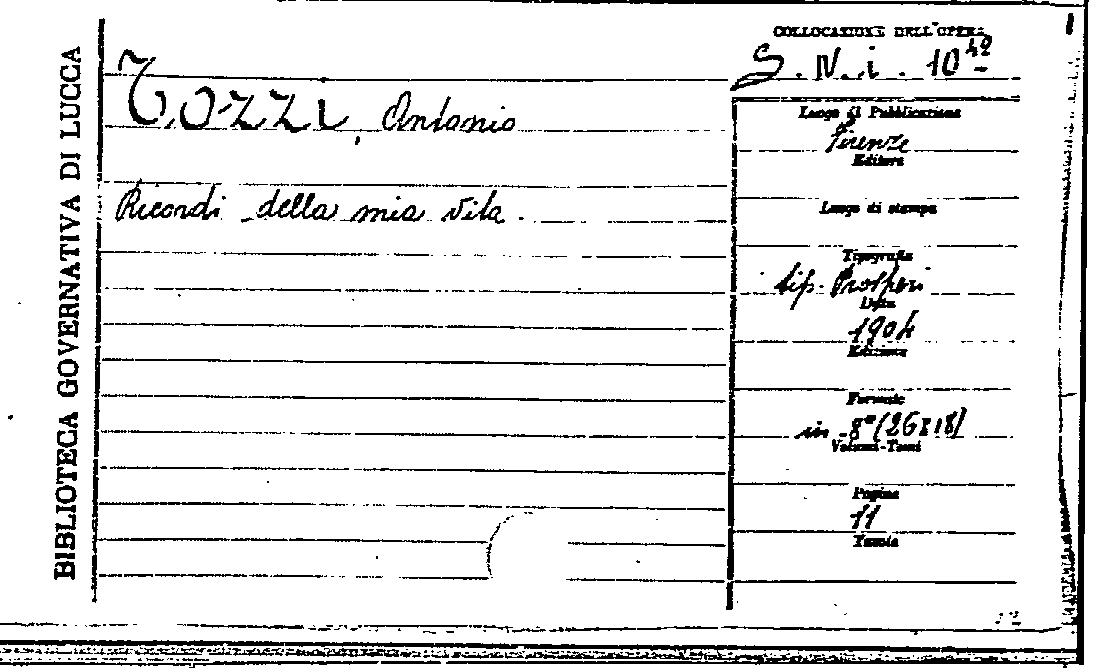 BIBLIOTECA GOVERNATIVA DI LUCCA
COLLOCAZIONE DELL'OPERA
S. N. i. 10 42
TOZZI, Antonio
Ricordi della mia vita.
Luogo di Pubblicazione
Firenze
Editore
Luogo di stampa
Tipografia
tip. Prosperi
Data
1904
Edizione
Formato
in-8° (26x18)
Volumi-Tomi
Pagine
11
Tavole